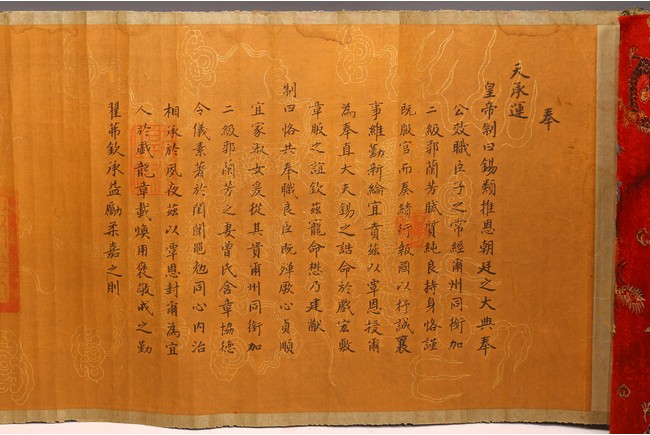 奉
天承運
皇帝制曰錫類推恩朝廷之大典奉
公效職臣子之常經爾州同銜加
二級郭蘭芳賦質純良持身恪謹
既服官而奏績行報國以行誠襄
事維勤新綸宜賁茲以覃恩授爾
為奉直大夫錫之誥命於戲宏敷
章服之誼欽茲寵命懋乃建猷
制曰恪共奉職良臣既殫厥心貞順
宜家淑女爰從其貴爾州同銜加
二級郭蘭芳之妻曾氏含章協德
令儀素著於閨闈黽勉同心內治
相承於夙夜茲以覃恩封爾為宜
人於戲龍章載煥用褒敬戒之勤
翟茀欽承益勵柔嘉之則